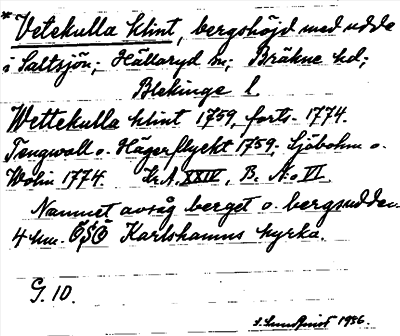 * Vetekulla klint, bergshöjd med udde
i Saltsjön; Hällaryd sn; Bräkne hd;
Blekinge l
Wettekulla klint 1759, forts. 1774.
Tengwall o. Hägerflyckt 1759; Sjöbohm o.
Wolin 1774. Kr.A. XXIV, B. A. o VI
Namnet avsåg berget o. bergsudden.
4 km. ÖSÖ Karlshamns kyrka.
G. 10.
S. Sundquist 1936.